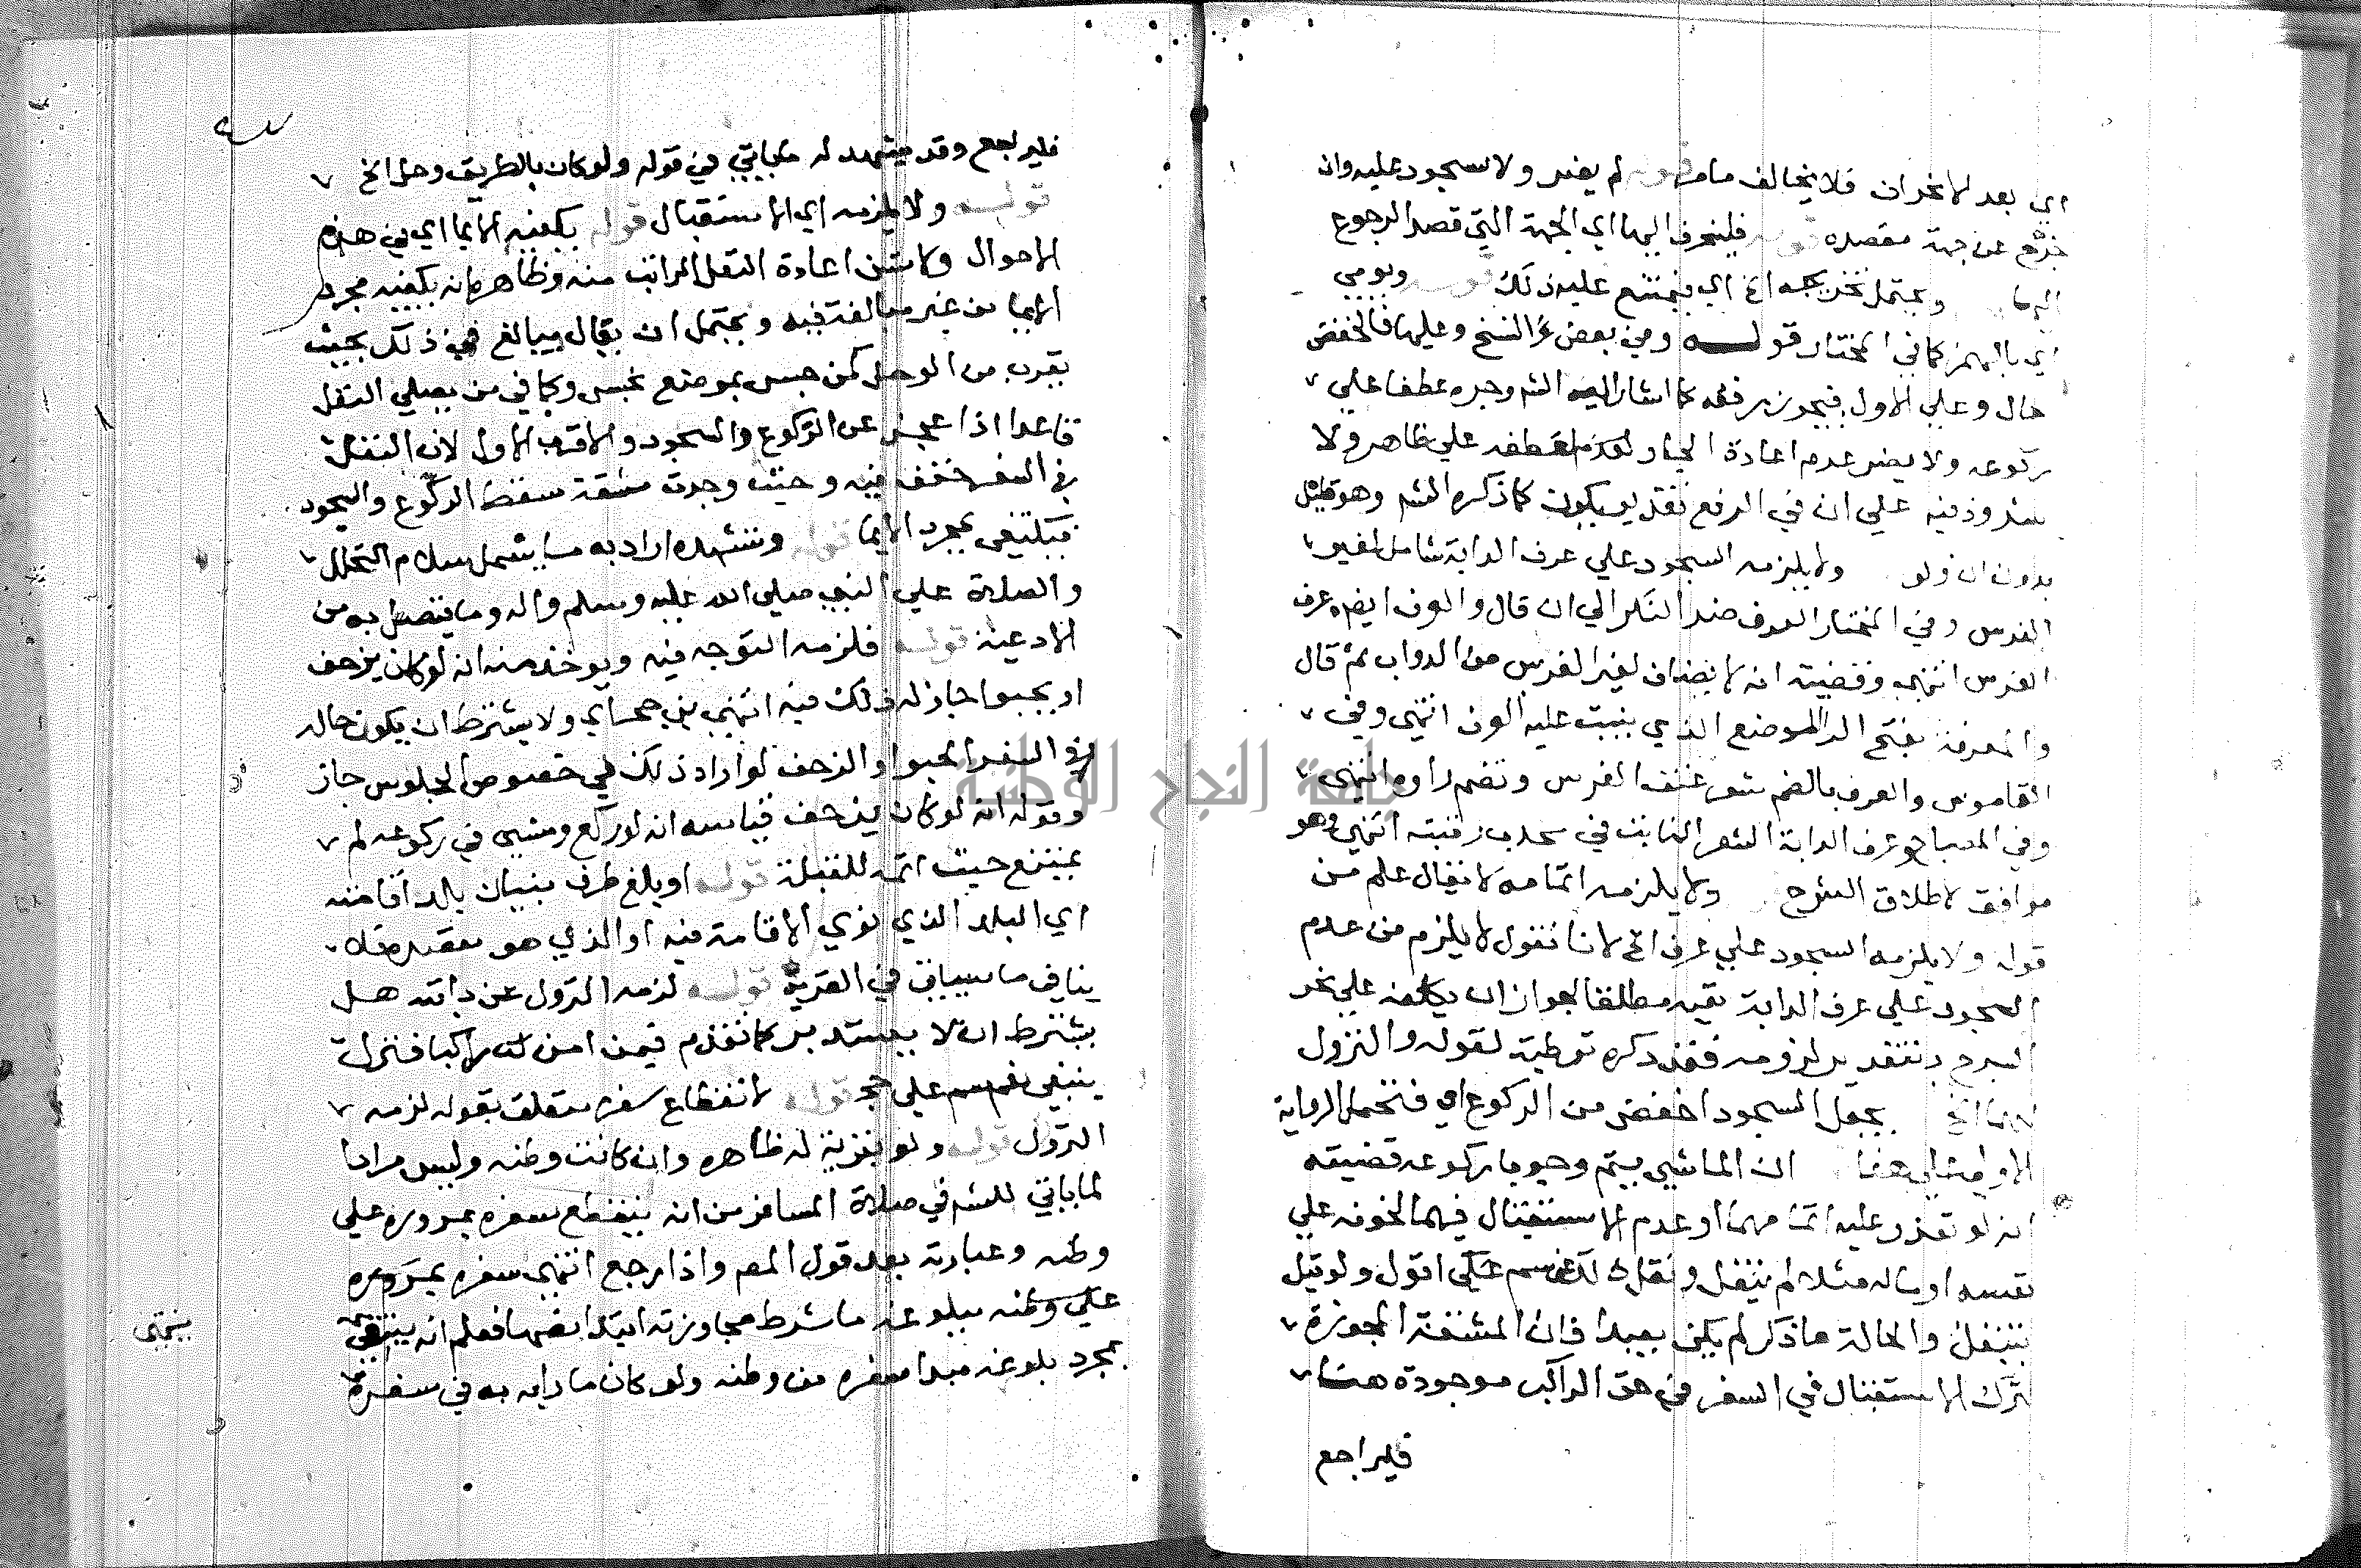 اي بعد الانحراف فلا يخالف ما مر قوله لم يضر ولا سجود عليه وان
خرج عن جهة مقصده قوله فلينحرف اليها اي الجهة التي قصد الرجوع
اليها ويحتمل تخريجه الخ اي فيمتنع عليه ذلك قوله ويومي
اي بالهمز كما في المختار قوله وفي بعض النسخ وعليها فاخفض
حال وعلي الاول فيجوز رفعه كما اشار اليه الشم وجره عطفا علي
ركوعه ولا يضر عدم اعادة الجار علي ظاهر ولا
شذوذ فيه علي ان في الرفع تقدير يكون كما ذكره الشم وهو قليل
بدون ان ولو ولا يلزمه السجود علي عرف الدابة شامل لغير
الفرس وفي المختار العرف ضد النكر الي ان قال والعرف ايضا عرف
الفرس انتهي وقضيته انه لا يضاف لغير الفرس من الدواب ثم قال
والمعرفة بفتح الرا الموضع الذي ينبت عليه العرف انتهي وفي
القاموس والعرف بالضم شعر عنق الفرس وتضم راوه انتهي
وفي المصباح وعرف الدابة الشعر النابت في محدب رقبته انتهي وهو
موافق لاطلاق الشرح ولا يلزمه اتمامه لا يقال علم من
قوله ولا يلزمه السجود علي عرف الخ لانا نقول لا يلزم من عدم
السجود علي عرف الدابة نفيه مطلقا لجواز ان يكلفه علي نحو
السرج بتقدير لزومه فقد ذكره توطية لقوله والنزول
لهما الخ بجعل السجود اخفض من الركوع اي فتحمل الرواية
الاولي علي هذا ان الماشي يتم وجوبا ركوعه قضيته
انه لو تعذر عليه اتمامهما او عدم الاستقبال فيهما لخوفه علي
نفسه او ماله مثلا لم يتنفل ونقل ذلك عن سم علي اقول ولو قيل
يتنفل والحالة ما ذكر لم يكن بعيدا فان المشقة المجوزة
لترك الاستقبال في السفر في حق الراكب موجودة هنا
فليراجع
فليراجع وقد يشهد له ما ياتي في قوله ولو كان بالطريق وحل الخ
قوله ولا يلزمه اي الاستقبال قوله يكفيه الايما اي في هذه
الاحوال ولا اعادة النفل الراتب منه وظاهره انه يكفيه مجرد
الايما من غير مبالغة فيه ويحتمل ان يقال يبالغ في ذلك بحيث
يقرب من الوحل كمن حبس بموضع نجس وكما في من يصلي النفل
قاعدا اذا عجز عن الركوع والسجود والاقرب الاول لان النفل
في السفر خفف فيه وحيث وجدت مشقة سقط الركوع والسجود
فيكتفي بمجرد الايما قوله وتشهده اراد به ما يشمل سلام التحلل
والصلاة علي النبي صلي الله عليه وسلم واله وما يتصل به من
الادعية قوله فلزمه التوجه فيه ويوخذ منه انه لو كان يزحف
او يحبوا جاز له ذلك فيه انتهي اي ولا يشترط ان يكون حاله
في السفر الحبوا والزحف لو اراد ذلك في خصوص الجلوس جاز
وقوله انه لو كان يزحف قياسه انه لو ركع ومشي في ركوعه لم
يمتنع حيث اتمه للقبلة قوله او بلغ طرف بنيان بلد اقامته
اي البلد الذي نوي الاقامة فيه او الذي هو مقصده
ينافي ما سياتي في القرية قوله لزمه النزول عن دابته هل
يشترط ان لا يستدبر كما تقدم فيمن امن راكبا فنزل
ينبغي نعم سم علي حج قوله لانقطاع سفره متعلق بقوله لزمه
النزول قوله ولو بقرية له ظاهره وان كانت وطنه وليس مرادا
لما ياتي للشم في صلاة المسافر من انه ينقطع سفره بمروره علي
وطنه وعبارته بعد قول المص واذا رجع انتهي سفره بمروره
علي وطنه ببلوغه ما شرط مجاوزته ابتدا فعلم انه ينتهي
بمجرد بلوغه مبدا سفره من وطنه ولو كان مارا به في سفره
ينتهي
جامعة النجاح الوطنية